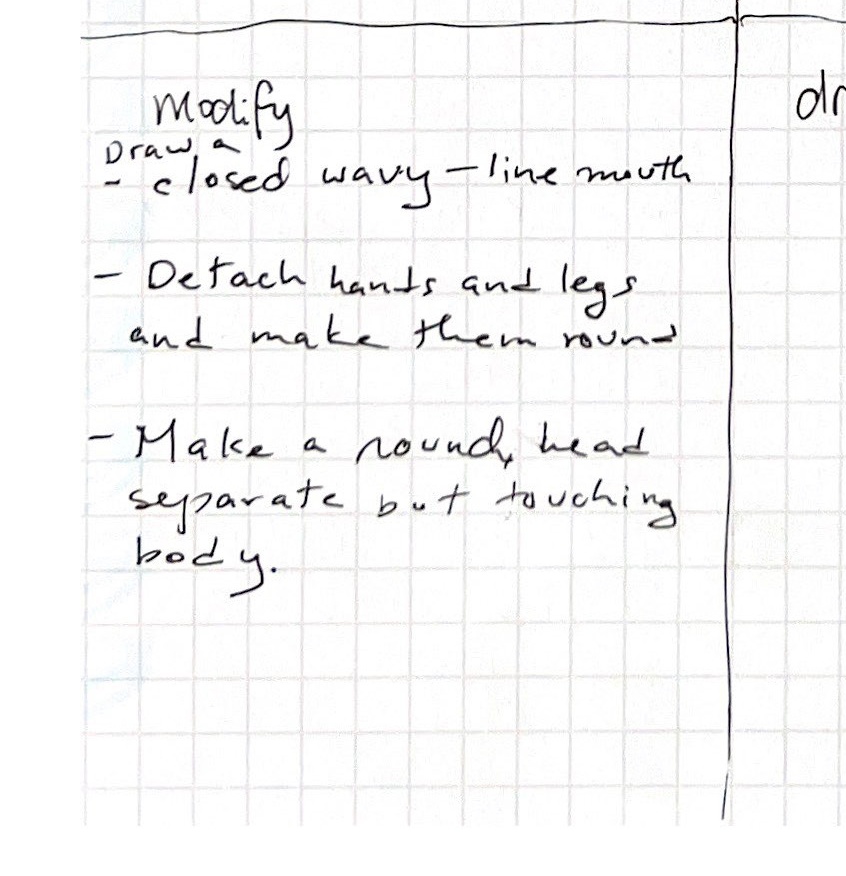 Modify
Draw a
- closed wavy-line mouth
- Detach hands and legs
and make them round
- Make a round, head
separate but touching
body.
dr